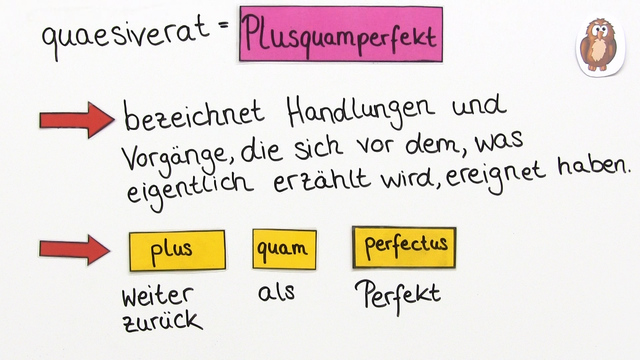 quaesiverat = Plusquamperfekt
bezeichnet Handlungen und
Vorgänge, die sich vor dem, was
eigentlich erzählt wird, ereignet haben.
plus quam perfectus
weiter als Perfekt
zurück